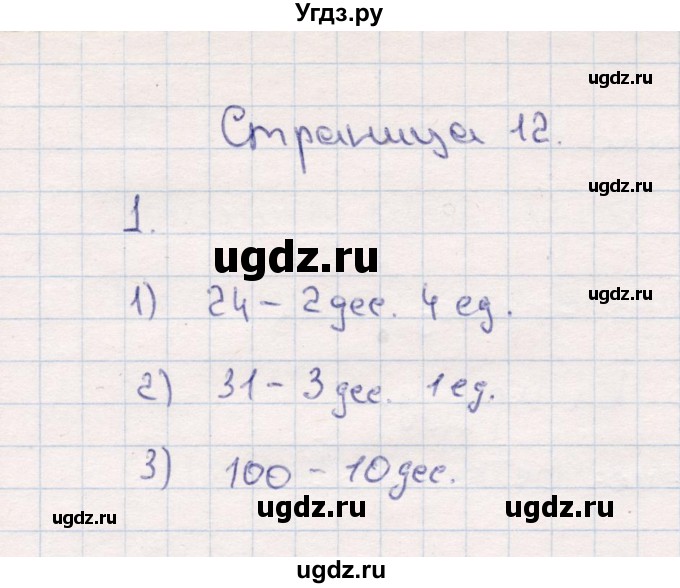 Угдз.ру
ugdz.ru
Страница 12.
ugdz.ru
1.
ugdz.ru
1) 24 - 2 дес. 4 ед.
ugdz.ru
2) 31 - 3 дес. 1 ед.
3) 100 - 10 дес.
ugdz.ru
ugdz.ru
ugdz.ru
ugdz.ru